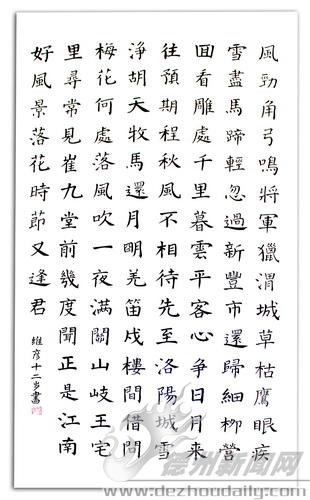 風勁角弓鳴將軍獵渭城草枯鷹眼疾
雪盡馬蹄輕忽過新豐市還歸細柳營
回看雕處千里暮雲平客心爭日月來
往預期程秋風不相待先至洛陽城雪
淨胡天牧馬還月明羌笛戍樓間借問
梅花何處落風吹一夜滿關山岐王宅
里尋常見崔九堂前幾度聞正是江南
好風景落花時節又逢君
維彥十二岁書
德州新闻网
www.dezhoudaily.com